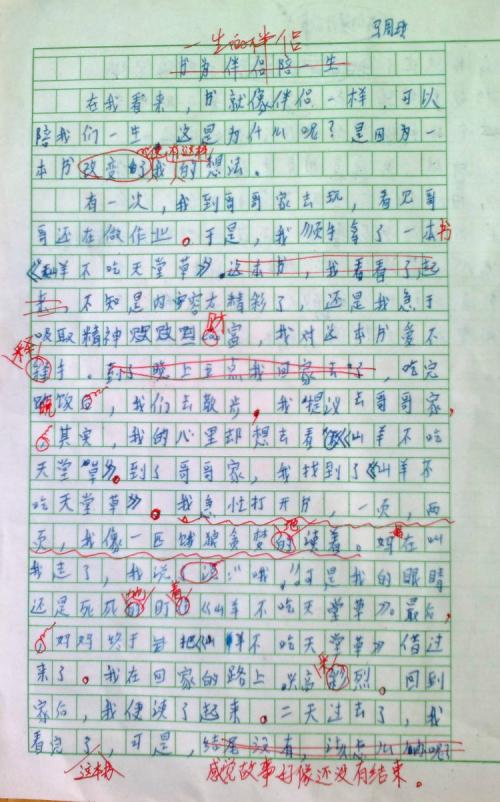 一生的伴侣
书为伴侣陪一生
在我看来，书就像伴侣一样，可以
陪我们一生。这是为什么呢？是因为一
本书改变了我的想法。
有一次，我到哥哥家去玩，看见哥
哥还在做作业。于是，我顺手拿了一本书
《山羊不吃天堂草》。这本书，我看看了起
来，不知是内容太精彩了，还是我急于
吸取精神财富，我对这本书爱不
释手。到了晚上五点我回家去了，吃完
晚饭，我们去散步，我提议去哥哥家，
其实，我的心里却想去看《山羊不吃
天堂草》。到了哥哥家，我找到了《山羊不
吃天堂草》。我急忙打开书，一页，两
页，我像一匹饿狼贪婪地读着。妈在叫
我走了，我说：“哦”，可是我的眼睛
还是死死地盯着《山羊不吃天堂草》。最后，
妈妈终于把《山羊不吃天堂草》借过
来了。我在回家的路上兴高彩烈。回到
家后，我便读了起来。二天过去了，我
看完了，可是，结尾没有，
这本书 感觉故事好像还没有结束。